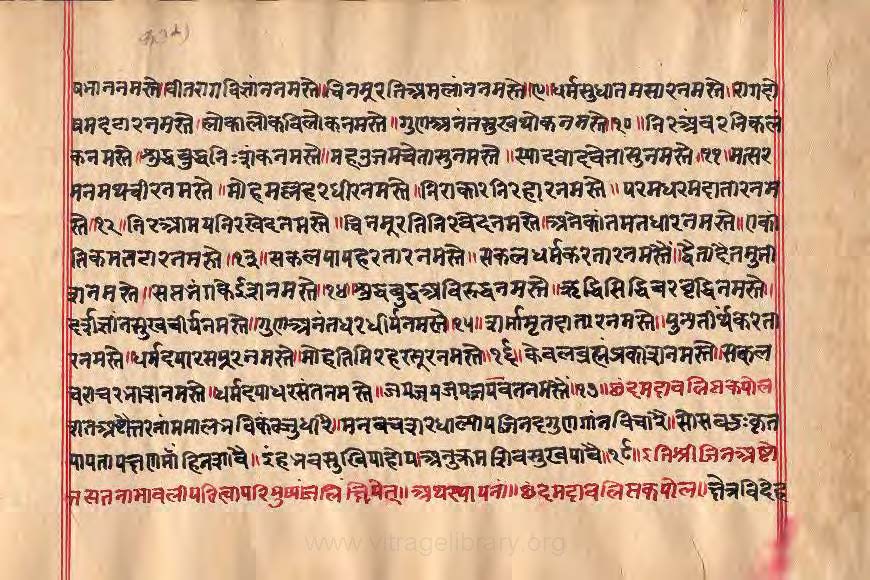 षभाननमस्ते॥वीतरागविज्ञाननमस्ते॥चिनमूरतिअमलांननमस्ते॥९॥धर्मसुधातमसारनमस्ते॥रागदो
षमददारनमस्ते॥लोकालोकविलोकनमस्ते॥गुणअनंतसुखथोकनमस्ते॥१०॥निरअंबरनिकलं
कनमस्ते॥शुद्धबुद्धनिःशंकनमस्ते॥नमस्ते॥स्यादवादनमस्ते॥११॥मत्सर
मनमथचीरनमस्ते॥मोहमल्लहरधीरनमस्ते॥निराकारनिरहारनमस्ते॥परमधरमदातारनम
स्ते॥१२॥निरआमयनिरखेदनमस्ते॥चिनमूरतिनिरवेदनमस्ते॥अनेकांतमतधारनमस्ते॥एकां
तिकमतदारनमस्ते॥१३॥सकलपापहरतारनमस्ते॥सकलधर्मकरतारनमस्ते॥
नमस्ते॥सप्तभंगनमस्ते॥१४॥शुद्धबुद्धअविरुद्धनमस्ते॥ऋद्धिसिद्धिवरवृद्धिनमस्ते॥
दर्शज्ञांनसुखवीर्यनमस्ते॥गुणअनंतधरधीर्यनमस्ते॥१५॥शर्मामृतदातारनमस्ते॥करता
रनमस्ते॥धर्मदयारसपूरनमस्ते॥मोहतिमिरहरसूरनमस्ते॥१६॥केवलब्रह्मप्रकाशनमस्ते॥सकल
चराचरभाशनमस्ते॥धर्मदयाधरसंतनमस्ते॥जयजयजयजयवंतनमस्ते॥१७॥छंदमदावलिप्तकपोल
शतअष्टोत्तरनांममालभविकंजुधारै॥मनवचशरधाल्यायजिनदगुणगांनविचारै॥सोसबदुःकृत
पापतापनाशावै॥इंहभवसुखिपाहोयअनुक्रमशिवसुखपावै॥१८॥इतिश्रीजिनअष्टो
तसतनामावलीपरिपुष्पांजलिंक्षिपेत्॥अथस्थापनां॥छंदमदावलिप्तकपोल॥क्षेत्रविदेह
www.vitragelibrary.org